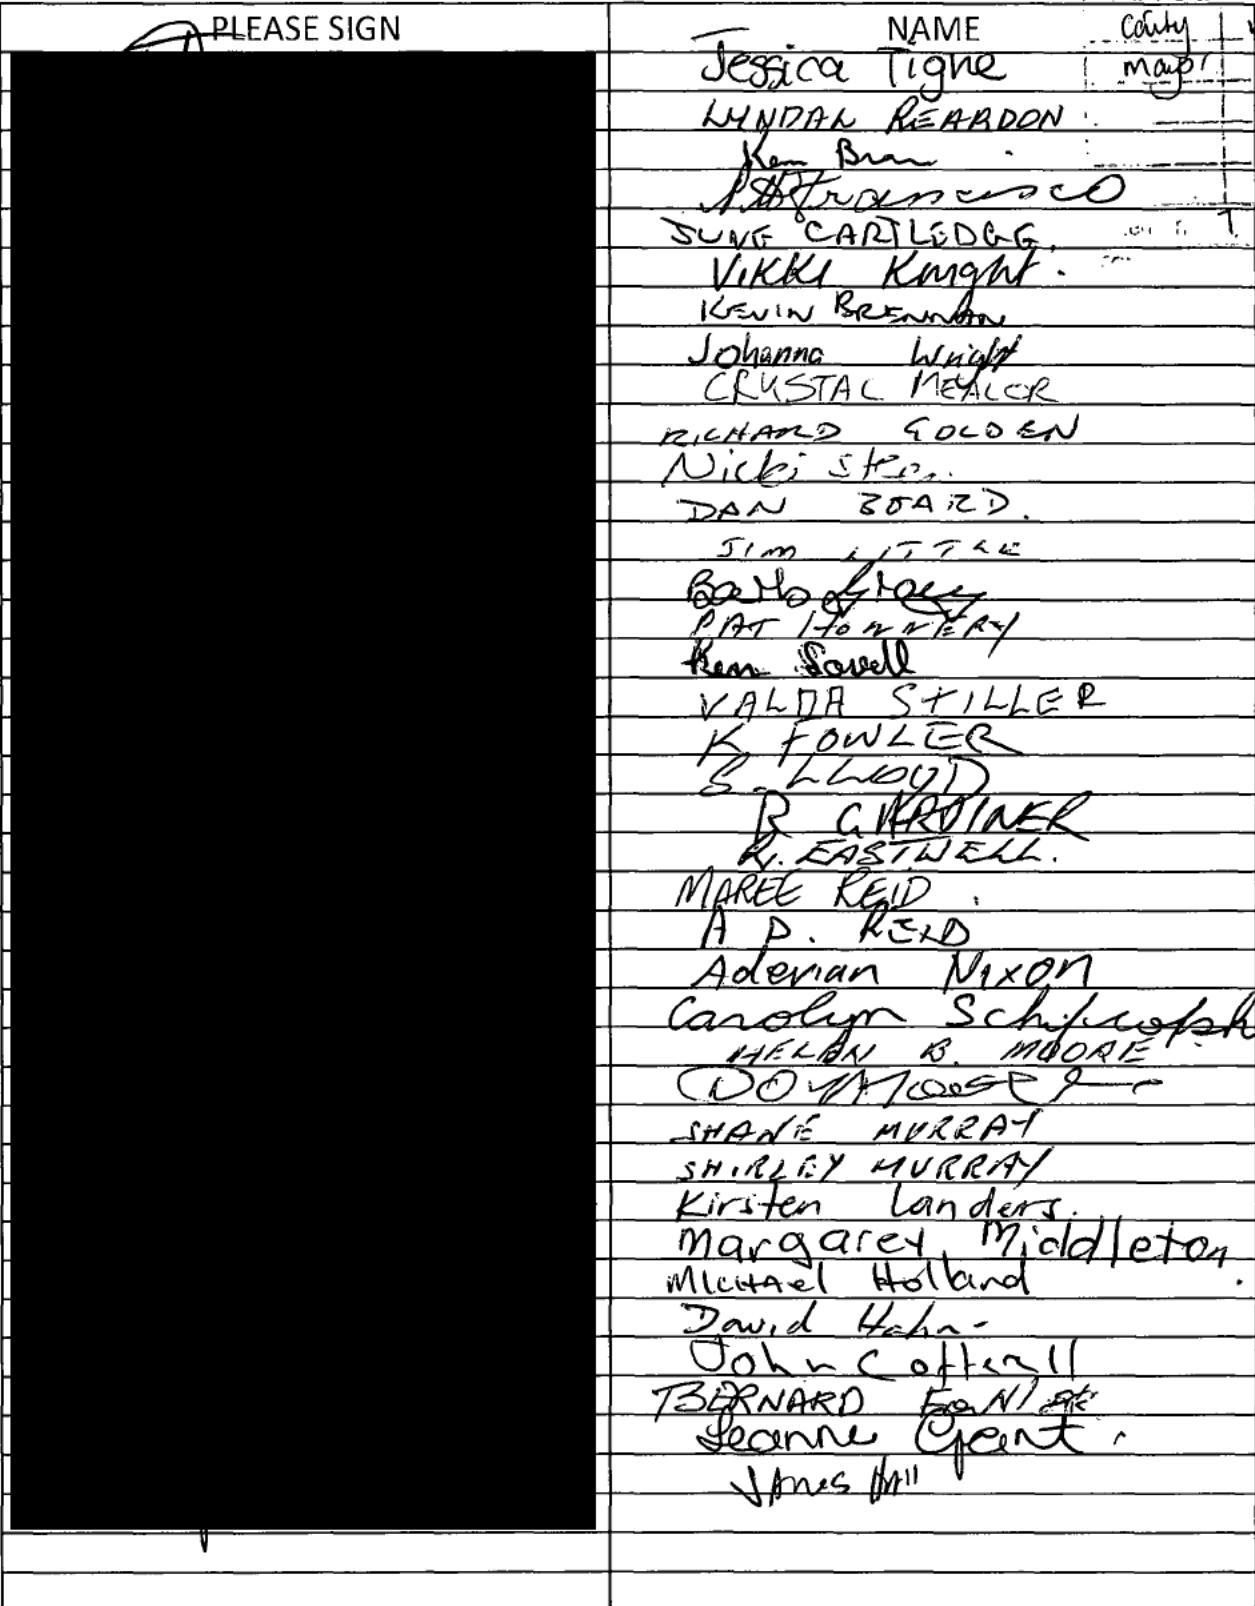 PLEASE SIGN NAME
Jessica Tighe
LYNDAL REARDON
Ken
JUNE CARTLEDGE.
VIKKI Knight.
KEVIN BRENNAN
Johanna Wright
CRYSTAL MEALOR
RICHARD GOLDEN
Nicki
DAN BOARD.
JIM LITTLE
PAT HONNERY
Ken Lovell
VALDA STILLER
K FOWLER
S. LLOYD
R GARDINER
R. EASTWELL.
MAREE REID
A P. REID
Aderian Nixon
Carolyn
HELEN B. MOORE
SHANE MURRAY
SHIRLEY MURRAY
Kirsten Landers.
Margaret Middleton.
MICHAel Holland
David Hahn
John Cotterill
BERNARD
Leanne Grant.
James Hill